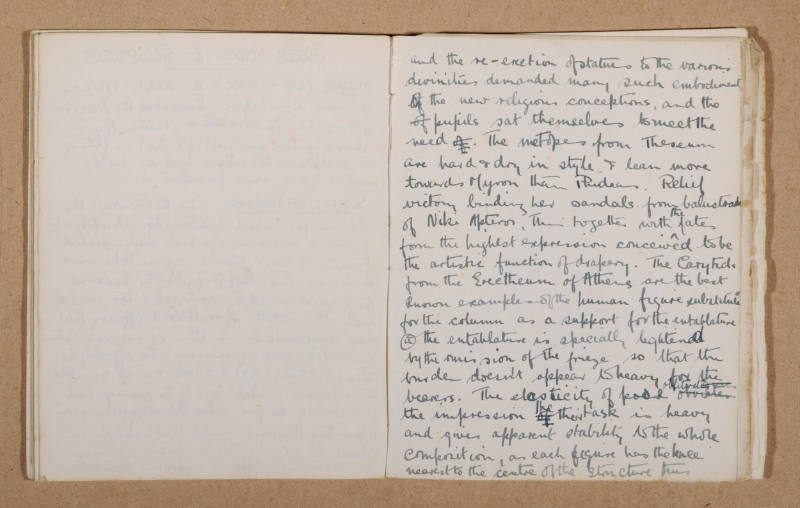 and the re-erection of statues to the various
divinities demanded many such embodiment
of the new religious conceptions, and the
of pupils sat themselves to meet the
need of. The metopes from Theseum
are hard & dry in style & lean more
towards Myron than Phideas. Relief
victory binding her sandals from balustrade
of Nike Apteros, This together with the fates
form the highest expression conceived to be
the artistic function of drapery. The Caryatids
from the Erectheum of Athens are the best
known examples of the human figure substitute
for the column as a support for the entablature
@ the entablature is specially lightened
by the omission of the frieze so that the
burden doesn't appear to heavy for the
bearers. The elasticity of pose obviates
the impression the their task is heavy
and gives apparent stability to the whole
composition, as each figure has the knee
nearest to the centre of the structure thus